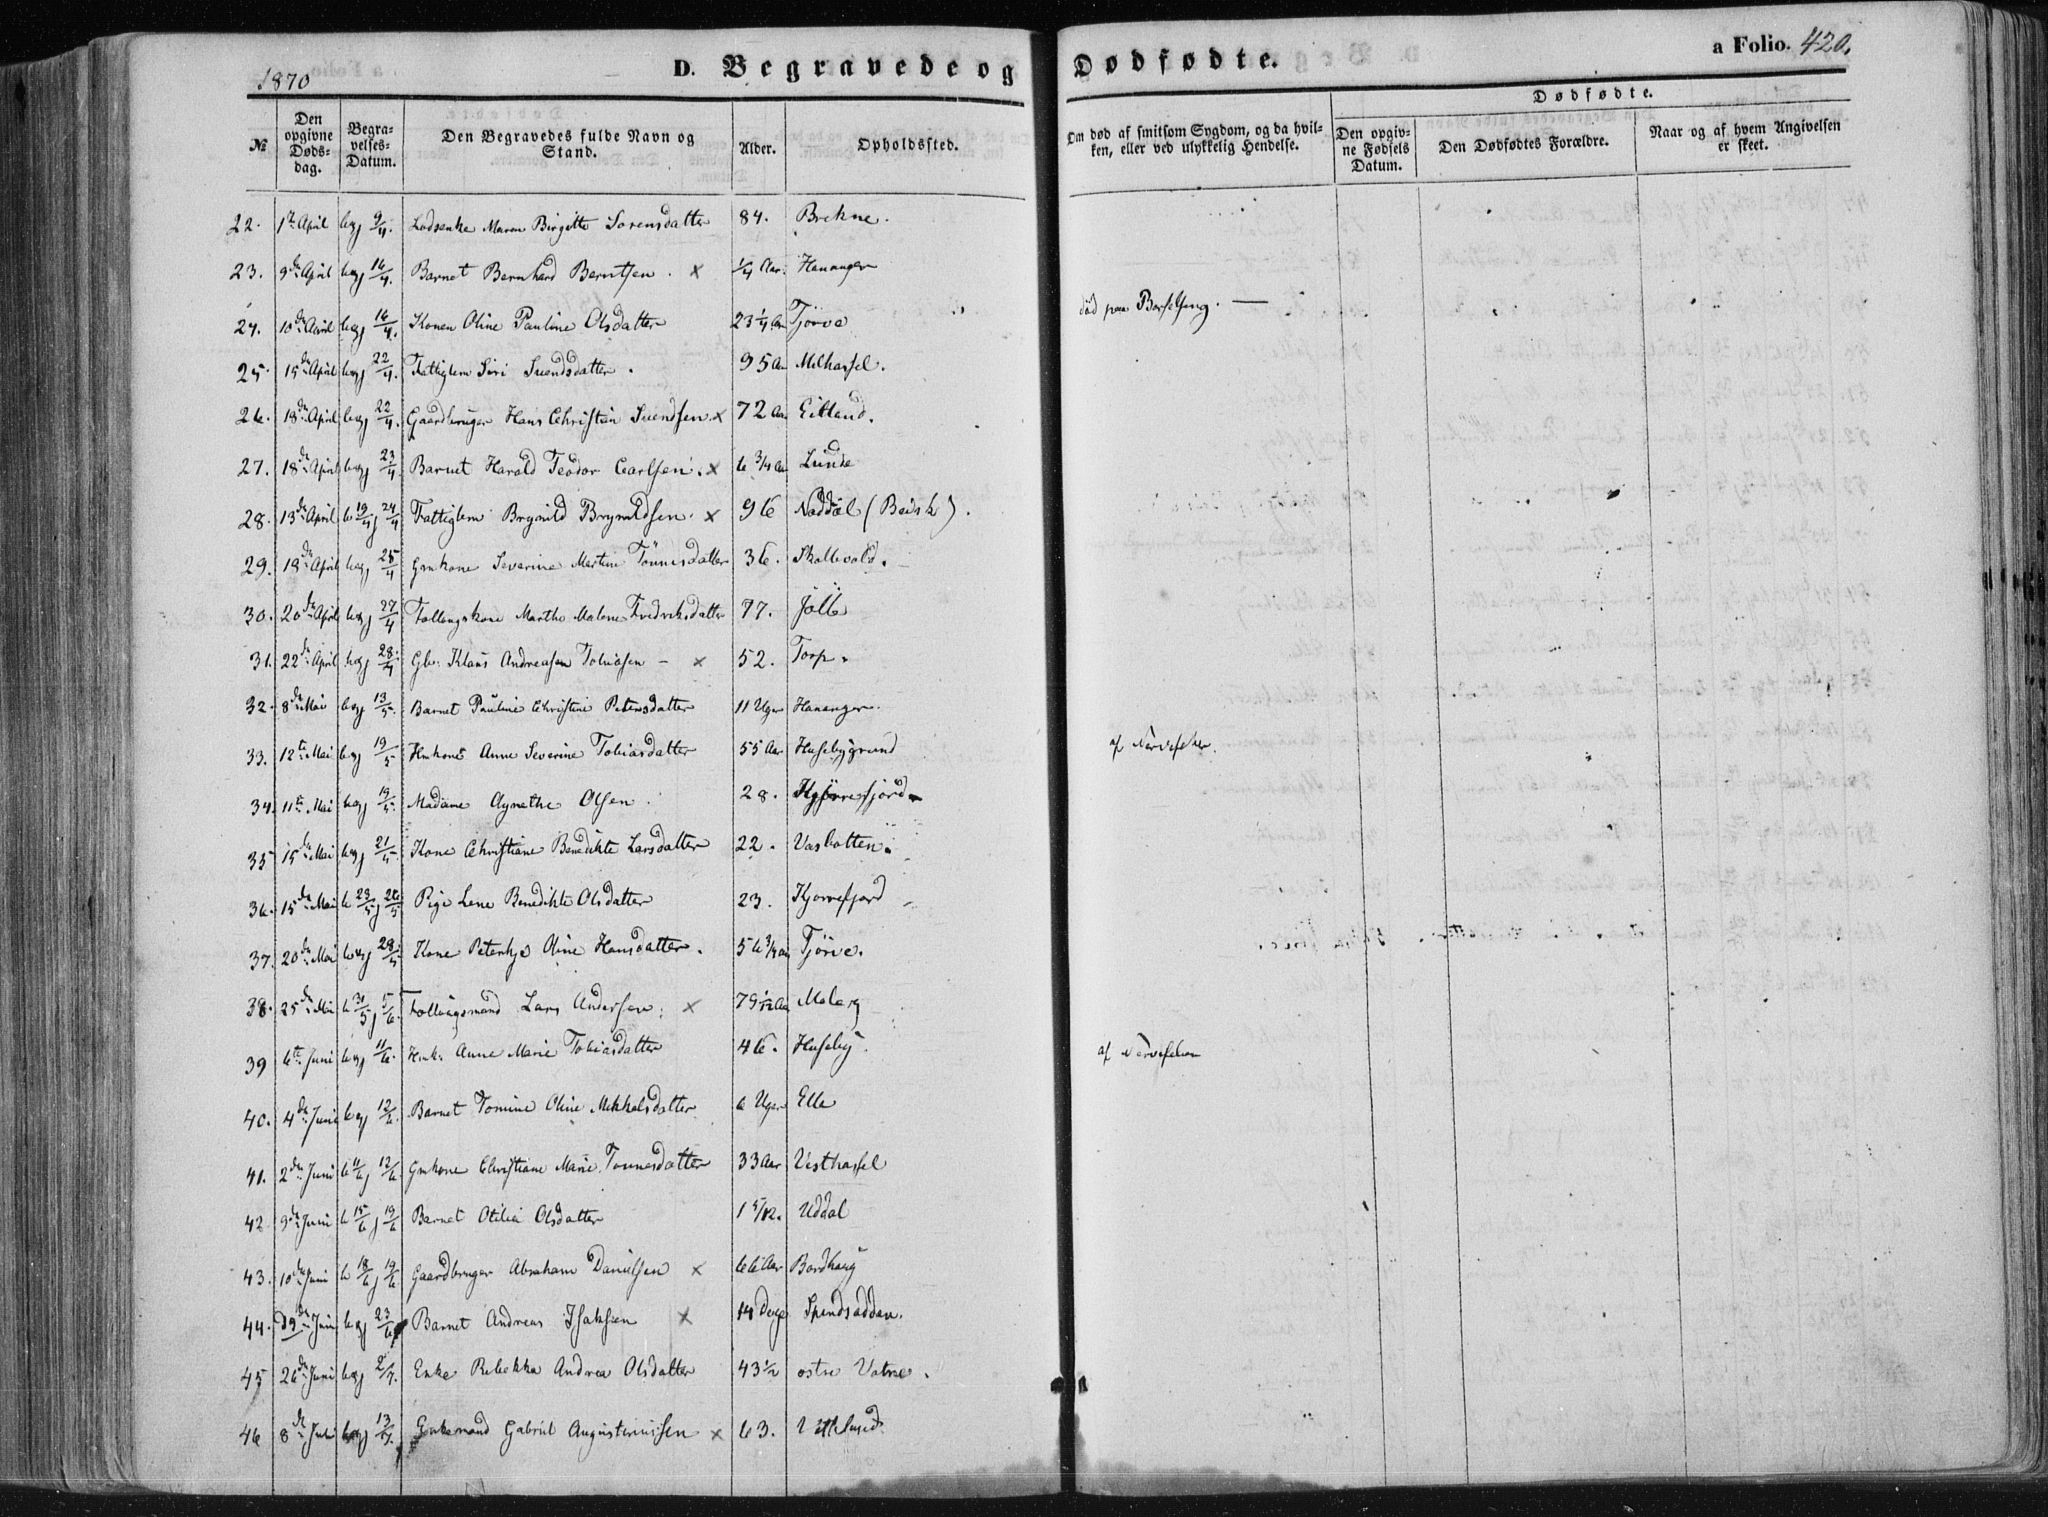 1870
D. Begravede og Dødfødte.
a Folio. 420.
№
Den opgivne Døds-dag.
Begra-velses-Datum.
Den Begravedes fulde Navn og Stand.
Alder.
Opholdssted.
Om død af smitsom Sygdom, og da hvil-ken, eller ved ulykkelig Hendelse.
Dødfødte.
Den opgiv-ne Fødsels Datum.
Den Dødfødtes Forældre.
Naar og af hvem Angivelsen er skeet.
22. 1te April beg 9/4. Lodsenke Maren Birgitte Sorensdatter 84. Brekne.
23. 9de April beg 16/4. Barnet Bernhard Berntsen. x 1/4 Aar. Hananger
24. 10de April beg 16/4. Konen Oline Pauline Olsdatter 23 1/4 Aar Tjörve død paa Barselseng. —
25. 15de April beg 22/4. Fattiglem Siri Svendsdatter. 95 Aar Melhassel.
26. 18de April beg 22/4. Gaardbruger Hans Christian Svendsen x 72 Aar Eitland.
27. 18de April beg 23/4 Barnet Harald Teodor Carlsen. x 6 3/4 Aar Lunde
28. 13de April b 19/4 j 24/4 Fattiglem Brynild Brynildsen. x 96 Noddal
29. 18de April beg 25/4 Gmkone Severine Martine Tönnesdatter 36. Skollevold.
30. 20de April beg 27/4 Follougskone Marthe Malene Fredriksdatter 77. Jölle
31. 22de April beg 28/4 Gbr. Klaus Andreasen Tobiasen — x 52. Torp.
32. 8de Mai beg 13/5. Barnet Pauline Christine Petersdatter 11 Uger Hananger.
33. 12te Mai beg 19/5 Hmkone Anne Severine Tobiasdatter 55 Aar Husebygrund af Nervefeber.
34. 11te Mai beg 19/5. Madame Agnethe Olsen. 28. Kjörrefjord.
35 15de Mai beg 21/5 Kone Christiane Benedikte Larsdatter 22. Vasbotten.
36. 15de Mai b 23/5 j 26/5 Pige Lene Benedikte Olsdatter 23. Kjorrefjord
37. 20de Mai beg 28/5. Kone Peterkje Oline Hansdatter. 56 3/4 Aar Tjörve.
38. 25de Mai b 31/5 j 5/6. Follougsmand Lars Andersen. x 79 1/12 Aar Maberg
39 6te Juni beg 11/6. Hmk. Anne Marie Tobiasdatter 46. Huseby. af Nervefeber
40. 4de Juni beg 12/6. Barnet Tomine Oline Mikkelsdatter 6 Uger Elle
41. 2den Juni b 11/6 j 12/6. Gmkone Christiane Marie Tonnesdatter 33 Aar Vesthassel
42 9de Juni b 15/6 j 19/6 Barnet Otilia Olsdatter 1 5/12. Uddal
43. 10de Juni b 18/6 j 19/6 Gaardbruger Abraham Danielsen x 66 Aar Bordhaug
44. 19de Juni beg 23/6 Barnet Andreas Isaksen x 14 Dage
45 26de Juni beg 2/7. Enke Rebekka Andrea Olsdatter 43 1/2 ostre Vatne.
46 8de Juli beg 13/7. Enkemand Gabriel Augustinussen x 63.